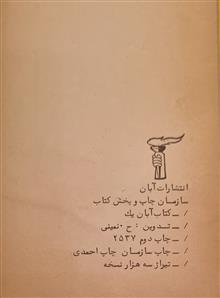 انتشارات آبان
سازمان چاپ و پخش کتاب
/ ـ کتاب آبان یك
/ ـ تدوین : ح ۰ نمینی
/ ـ چاپ دوم ۲۵۳۷
/ ـ چاپ سازمان چاپ احمدی
/ ـ تیراژ سه هزار نسخه